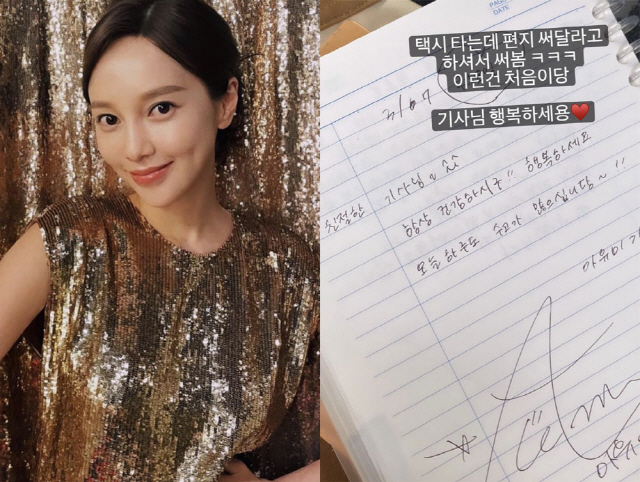 PAGE
DATE
택시 타는데 편지 써달라고
하셔서 써봄 ㅋㅋㅋ
이런건 처음이당
기사님 행복하세용❤️
친절한 기사님
항상 건강하시구!! 행복하세요
오늘 하루도 수고가 많으십니당~!!
아유미